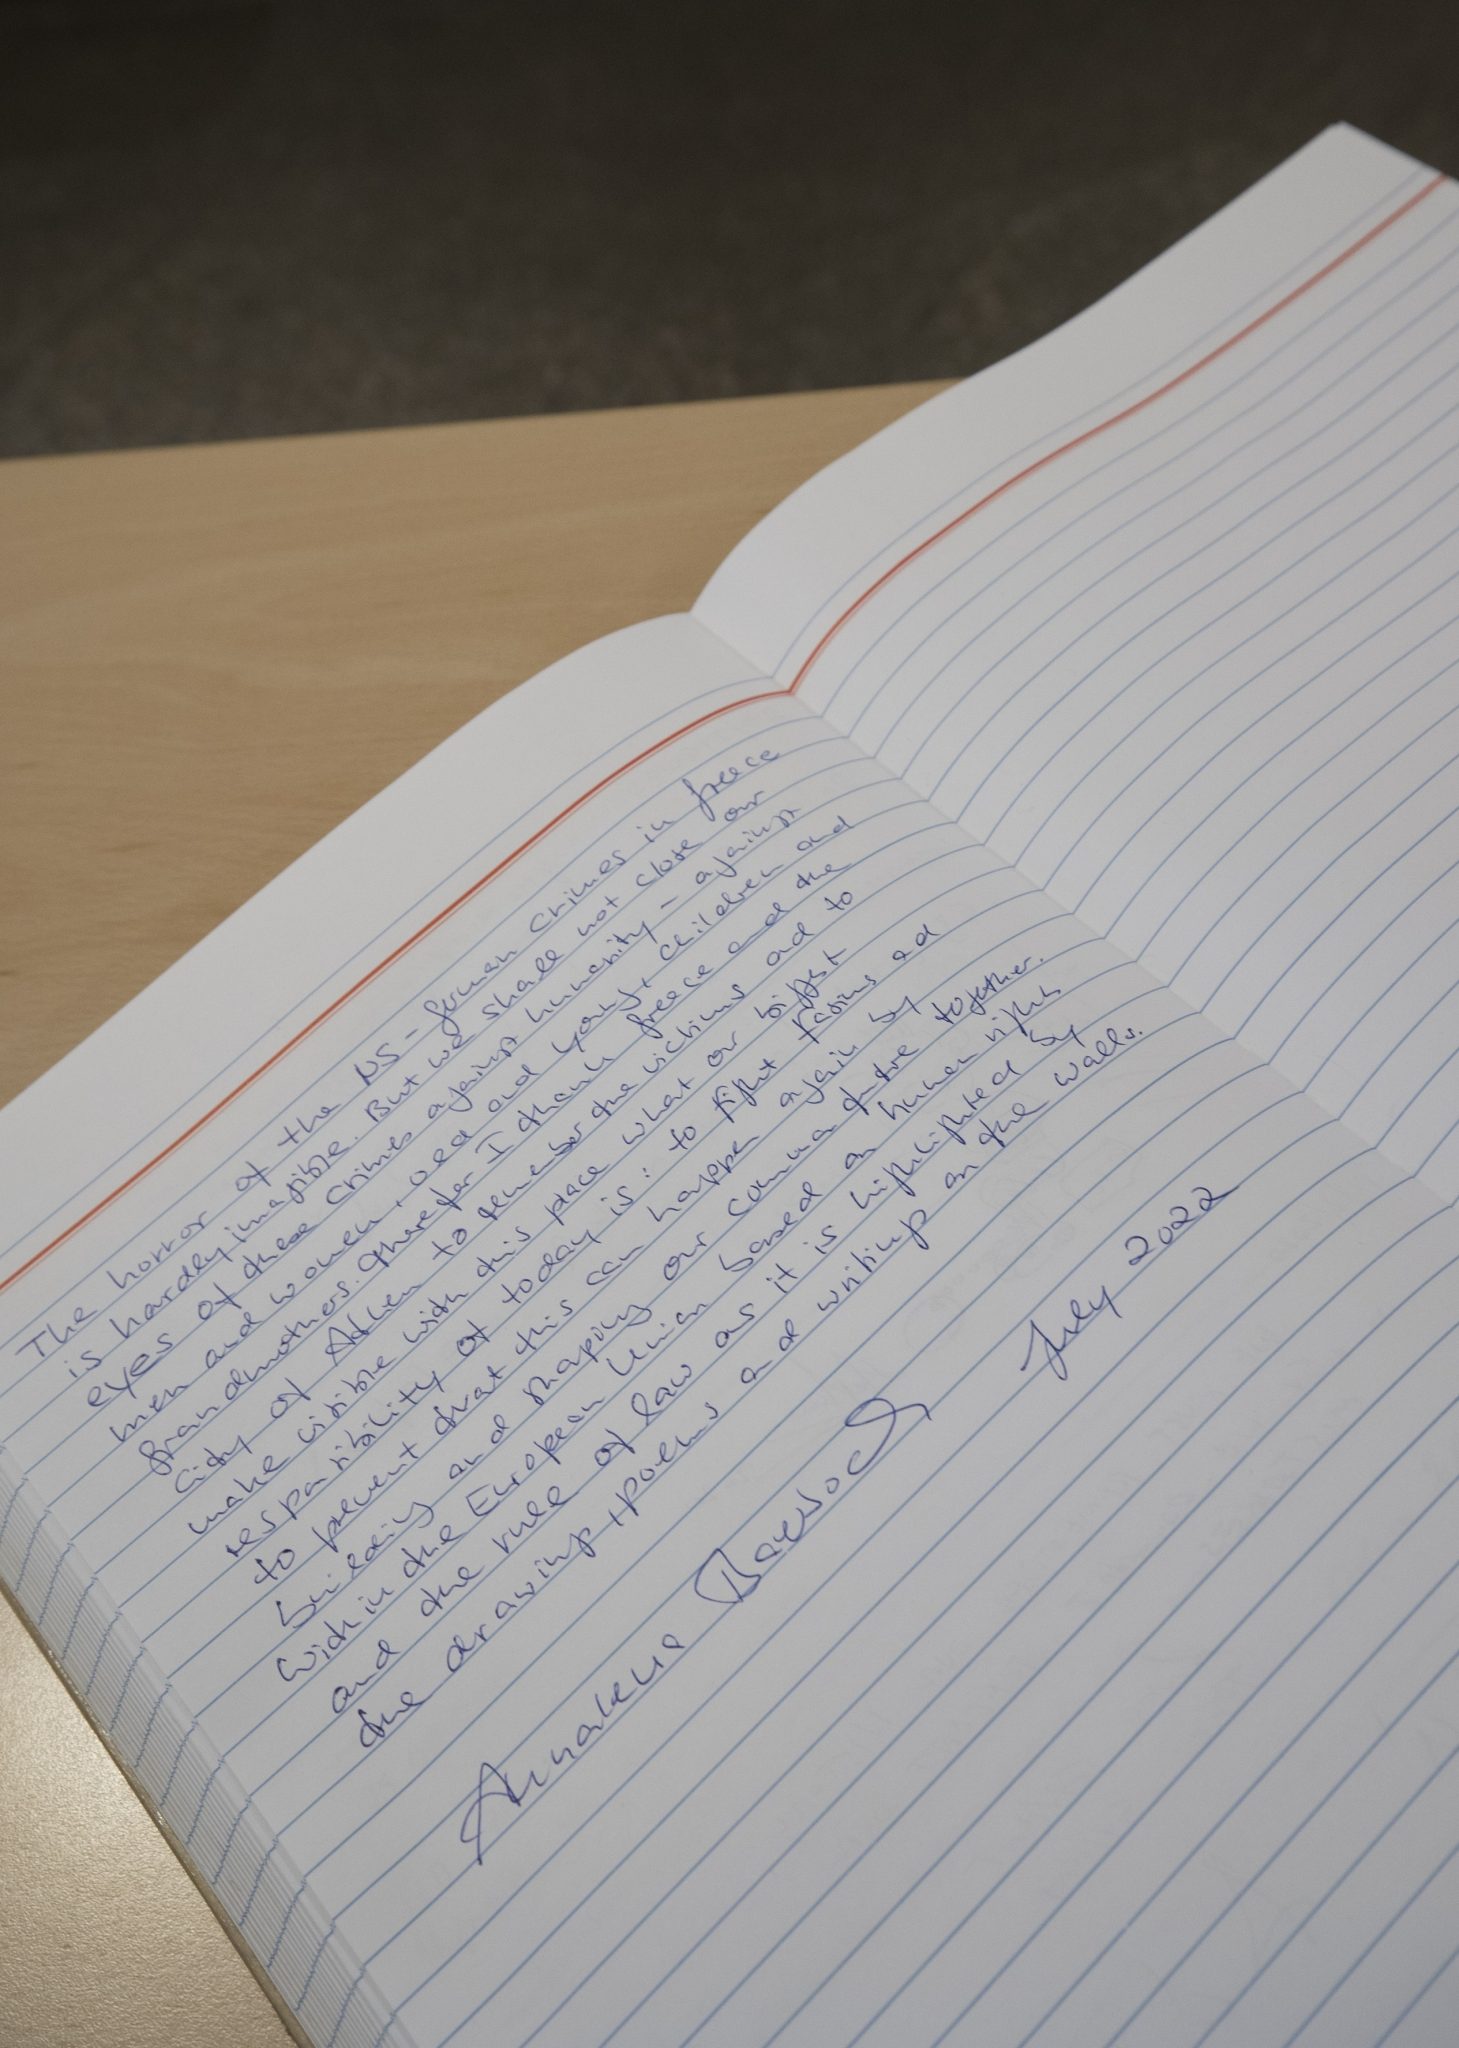 The horror of the NS-German crimes in Greece
is hardly imagible. But we shall not close our
eyes of these crimes against humanity - against
men and women, old and young, children and
grandmothers. Therefor I thank Greece and the
City of Athen to remember the victims and to
make visible with this place what our biggest
responsibility of today is: to fight facism and
to prevent that this can happen again by
building and shaping our common future together.
Within the European Union based on human rights
and the rule of law as it is highlighted by
the drawing, poems and writing on the walls.
Annalena Baerbock July 2022